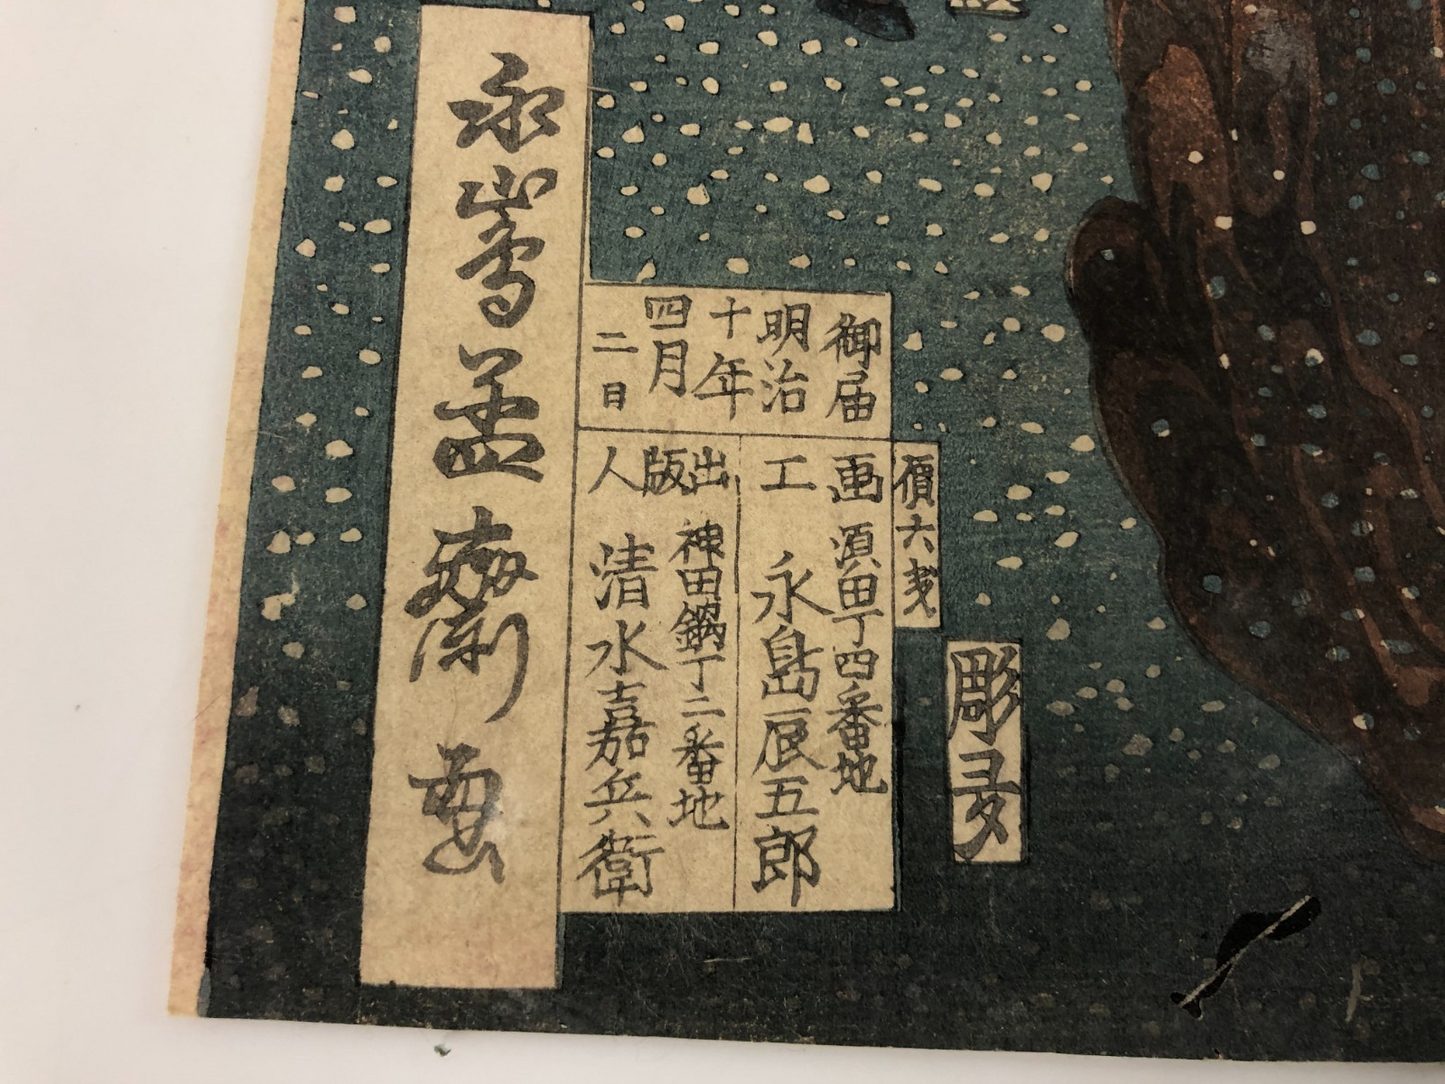 彫弓
價六戔
御届
明治
十年
四月
二日
画工
須田丁四番地
永島辰五郎
出版人
神田鍋丁二番地
清水嘉兵衛
永島孟齋画